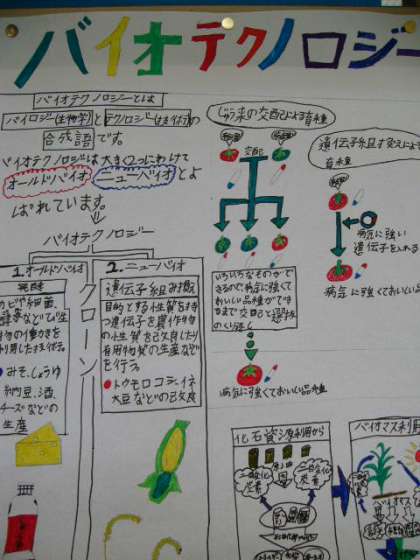 バイオテクノロジー
バイオテクノロジーとは
バイロジー(生物学)とテクノロジー(技術)の
合成語です。
バイオテクノロジは大きく2つにわけて
オールドバイオ ニューバイオとよ
ばれています。
バイオテクノロジー
1.オールドバイオ
発酵
カビや細菌、
酵母などの生
物の働きを
利用した技術。
みそ、しょうゆ
納豆、酒、
チーズなどの
生産
クローン
2.ニューバイオ
遺伝子組み換え
目的とする性質を持
つ遺伝子を農作物
の性質を改良したり
有用物質の生産など
を行う。
トウモロコシ、イネ
大豆などの改良
じゅう来の交配による育種
交配
いろいろなものがで
きるので病気に強く
ておいしい品種がで
きるまで交配と選抜
のくり返し
病気に強くておいしい品種
遺伝子組み換えによる
育種
病気に強い
遺伝子を入れる
病気に強くておいしい品
化石資源利用から
二酸化
炭素
二酸化
炭素
バイオマス利用